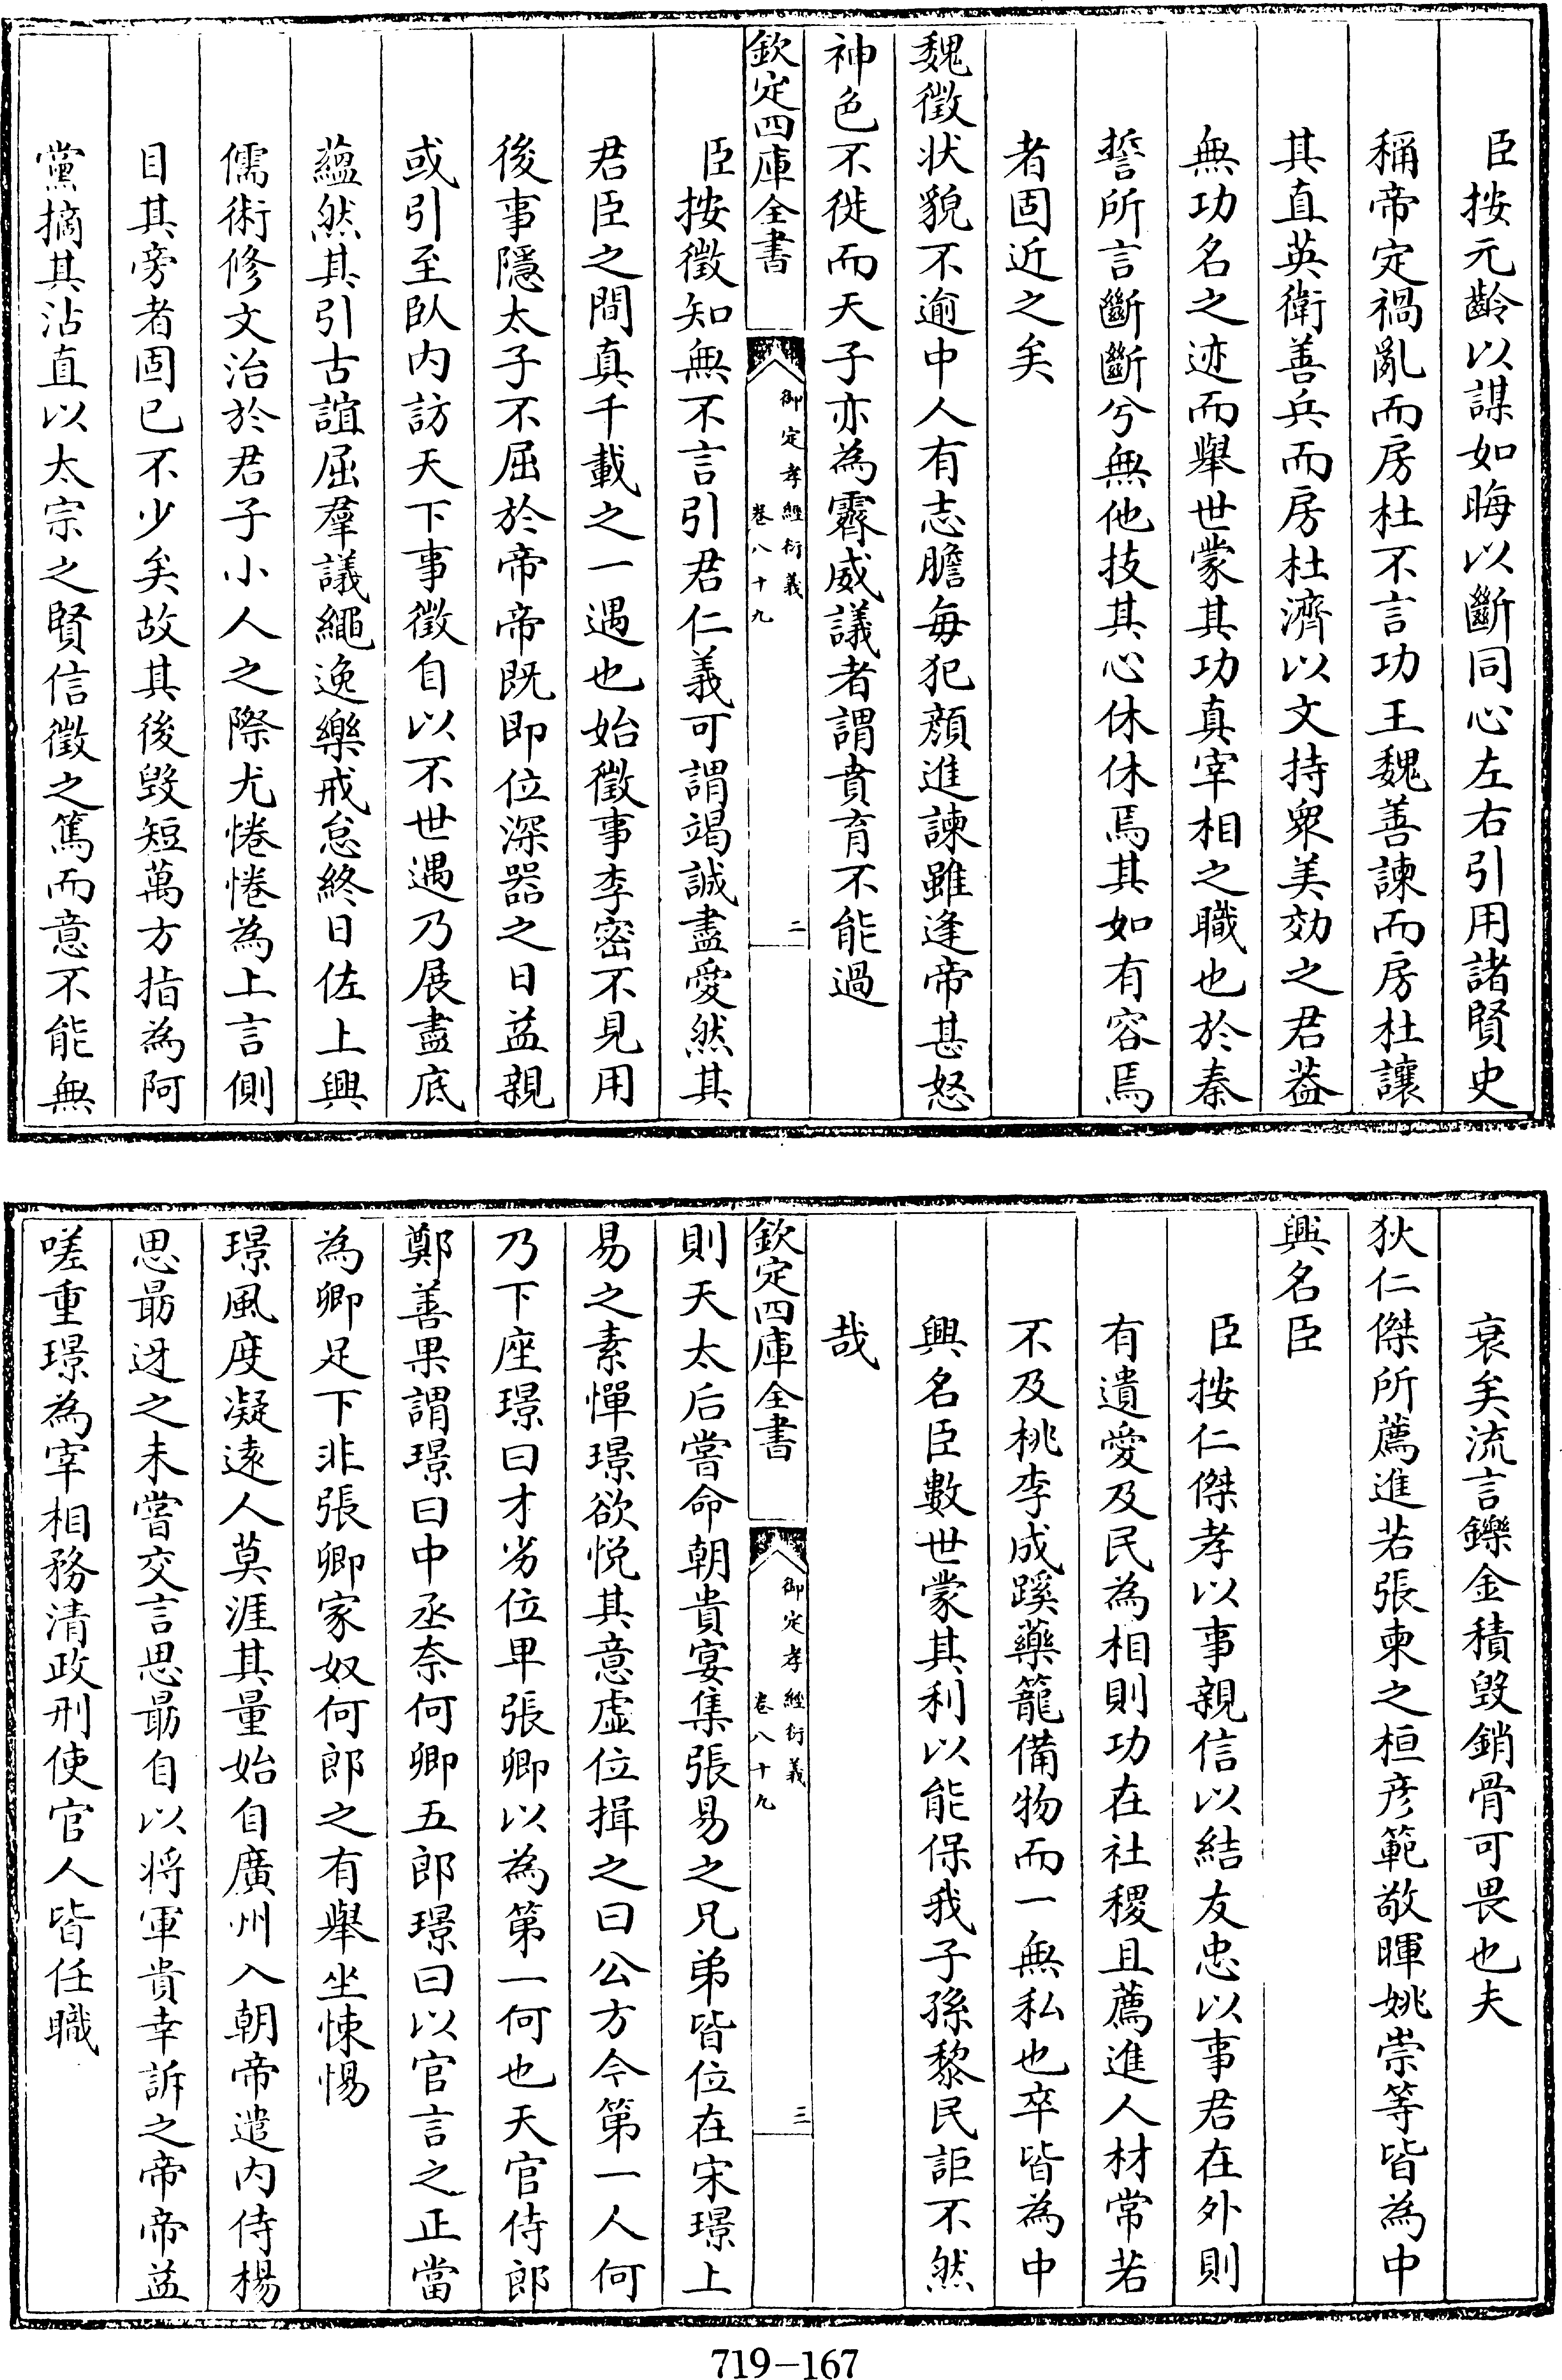 臣按元齡以謀如晦以斷同心左右引用諸賢史
稱帝定禍亂而房杜不言功王魏善諫而房杜讓
其直英衛善兵而房杜濟以文持衆美効之君葢
無功名之迹而舉世蒙其功真宰相之職也於秦
誓所言斷斷兮無他技其心休休焉其如有容焉
者固近之矣
魏徵状貌不逾中人有志膽毎犯顔進諫雖逢帝甚怒
神色不徙而天子亦為霽威議者謂賁育不能過
欽定四庫全書
御定孝經衍義
卷八十九
二
臣按徵知無不言引君仁義可謂竭誠盡愛然其
君臣之間真千載之一遇也始徵事李密不見用
後事隱太子不屈於帝帝既即位深器之日益親
或引至臥内訪天下事徵自以不世遇乃展盡底
蘊然其引古誼屈羣議繩逸樂戒怠終日佐上興
儒術修文治於君子小人之際尤惓惓為上言側
目其旁者固已不少矣故其後毀短萬方指為阿
黨摘其沽直以太宗之賢信徵之篤而意不能無
衰矣流言鑠金積毀銷骨可畏也夫
狄仁傑所薦進若張柬之桓彦範敬暉姚崇等皆為中
興名臣
臣按仁傑孝以事親信以結友忠以事君在外則
有遺愛及民為相則功在社稷且薦進人材常若
不及桃李成蹊藥籠備物而一無私也卒皆為中
興名臣數世蒙其利以能保我子孫黎民詎不然
哉
欽定四庫全書
御定孝經衍義
卷八十九
三
則天太后嘗命朝貴宴集張易之兄弟皆位在宋璟上
易之素憚璟欲悦其意虚位揖之曰公方今第一人何
乃下座璟曰才劣位卑張卿以為第一何也天官侍郎
鄭善果謂璟曰中丞奈何卿五郎璟曰以官言之正當
為卿足下非張卿家奴何郎之有舉坐悚惕
璟風度凝逺人莫涯其量始自廣州入朝帝遣内侍楊
思勗迓之未嘗交言思勗自以将軍貴幸訴之帝帝益
嗟重璟為宰相務清政刑使官人皆任職
719-167